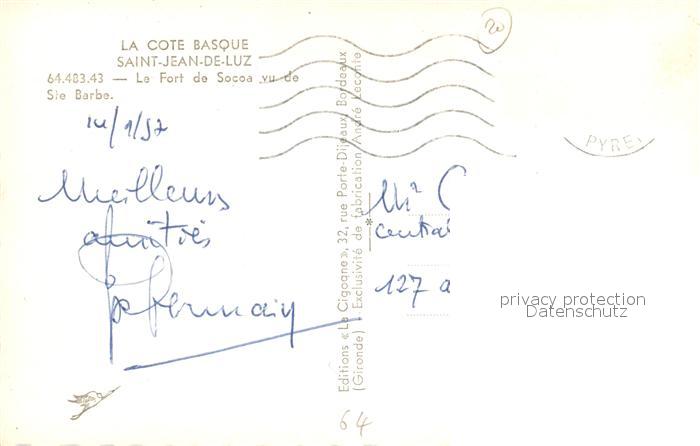 20
LA COTE BASQUE
SAINT-JEAN-DE-LUZ
64.483.43 — Le Fort de Socoa vu de
Ste Barbe.
14/1/57
Meilleurs
amitiés
Germain
Editions « La Cigogne », 32, rue Porte-Dijeaux, Bordeaux
(Gironde) Exclusivité de fabrication André Leconte
PYRE
Mr C
*
central
127 a
privacy protection
Datenschutz
64